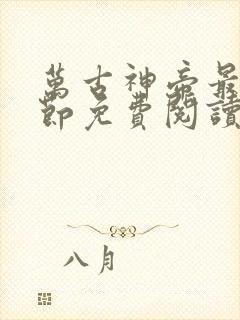 萬古神帝最
節免費閱讀
八月